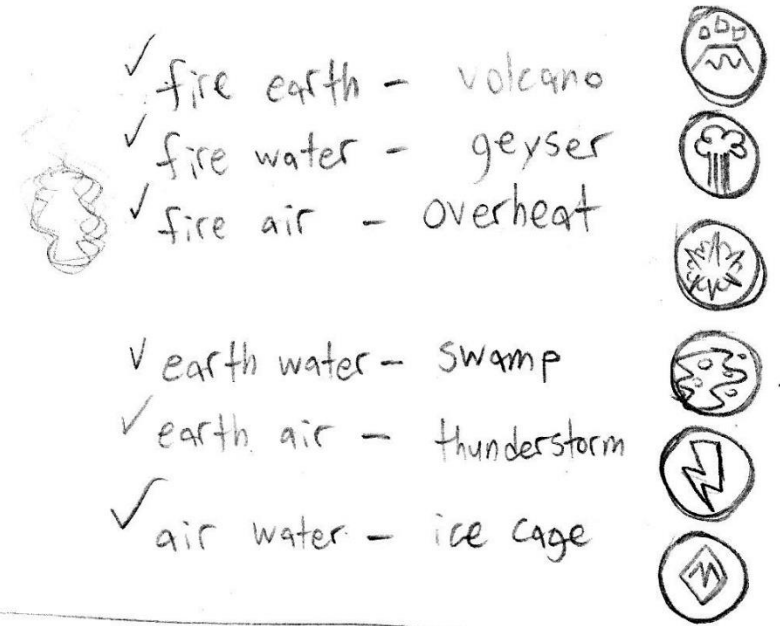 ✓ fire earth - volcano
✓ fire water - geyser
✓ fire air - overheat
✓ earth water - swamp
✓ earth air - thunderstorm
✓ air water - ice cage